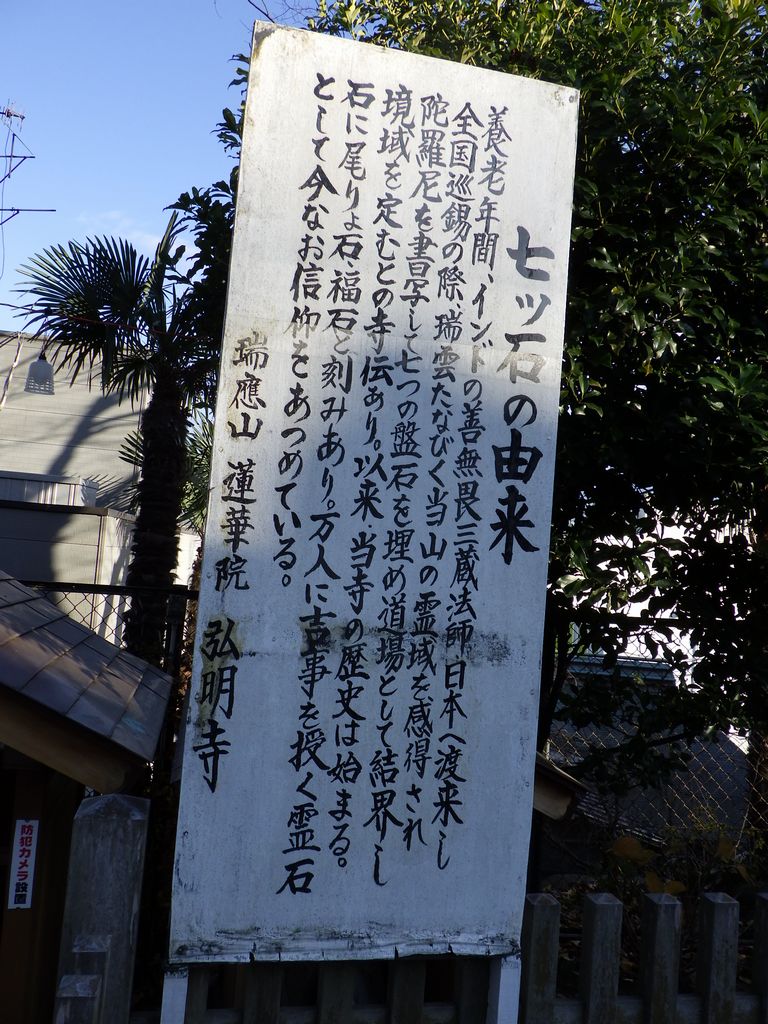 七ツ石の由来
養老年間、インドの善無畏三蔵法師日本へ渡来し
全国巡錫の際、瑞雲たなびく当山の霊域を感得され
陀羅尼を書写して七つの盤石を埋め道場として結界し
境域を定むとの寺伝あり。以来・当寺の歴史は始まる。
石に尾りょ石・福石と刻みあり。万人に吉事を授く霊石
として今なお信仰をあつめている。
瑞應山 蓮華院 弘明寺
防犯カメラ設置